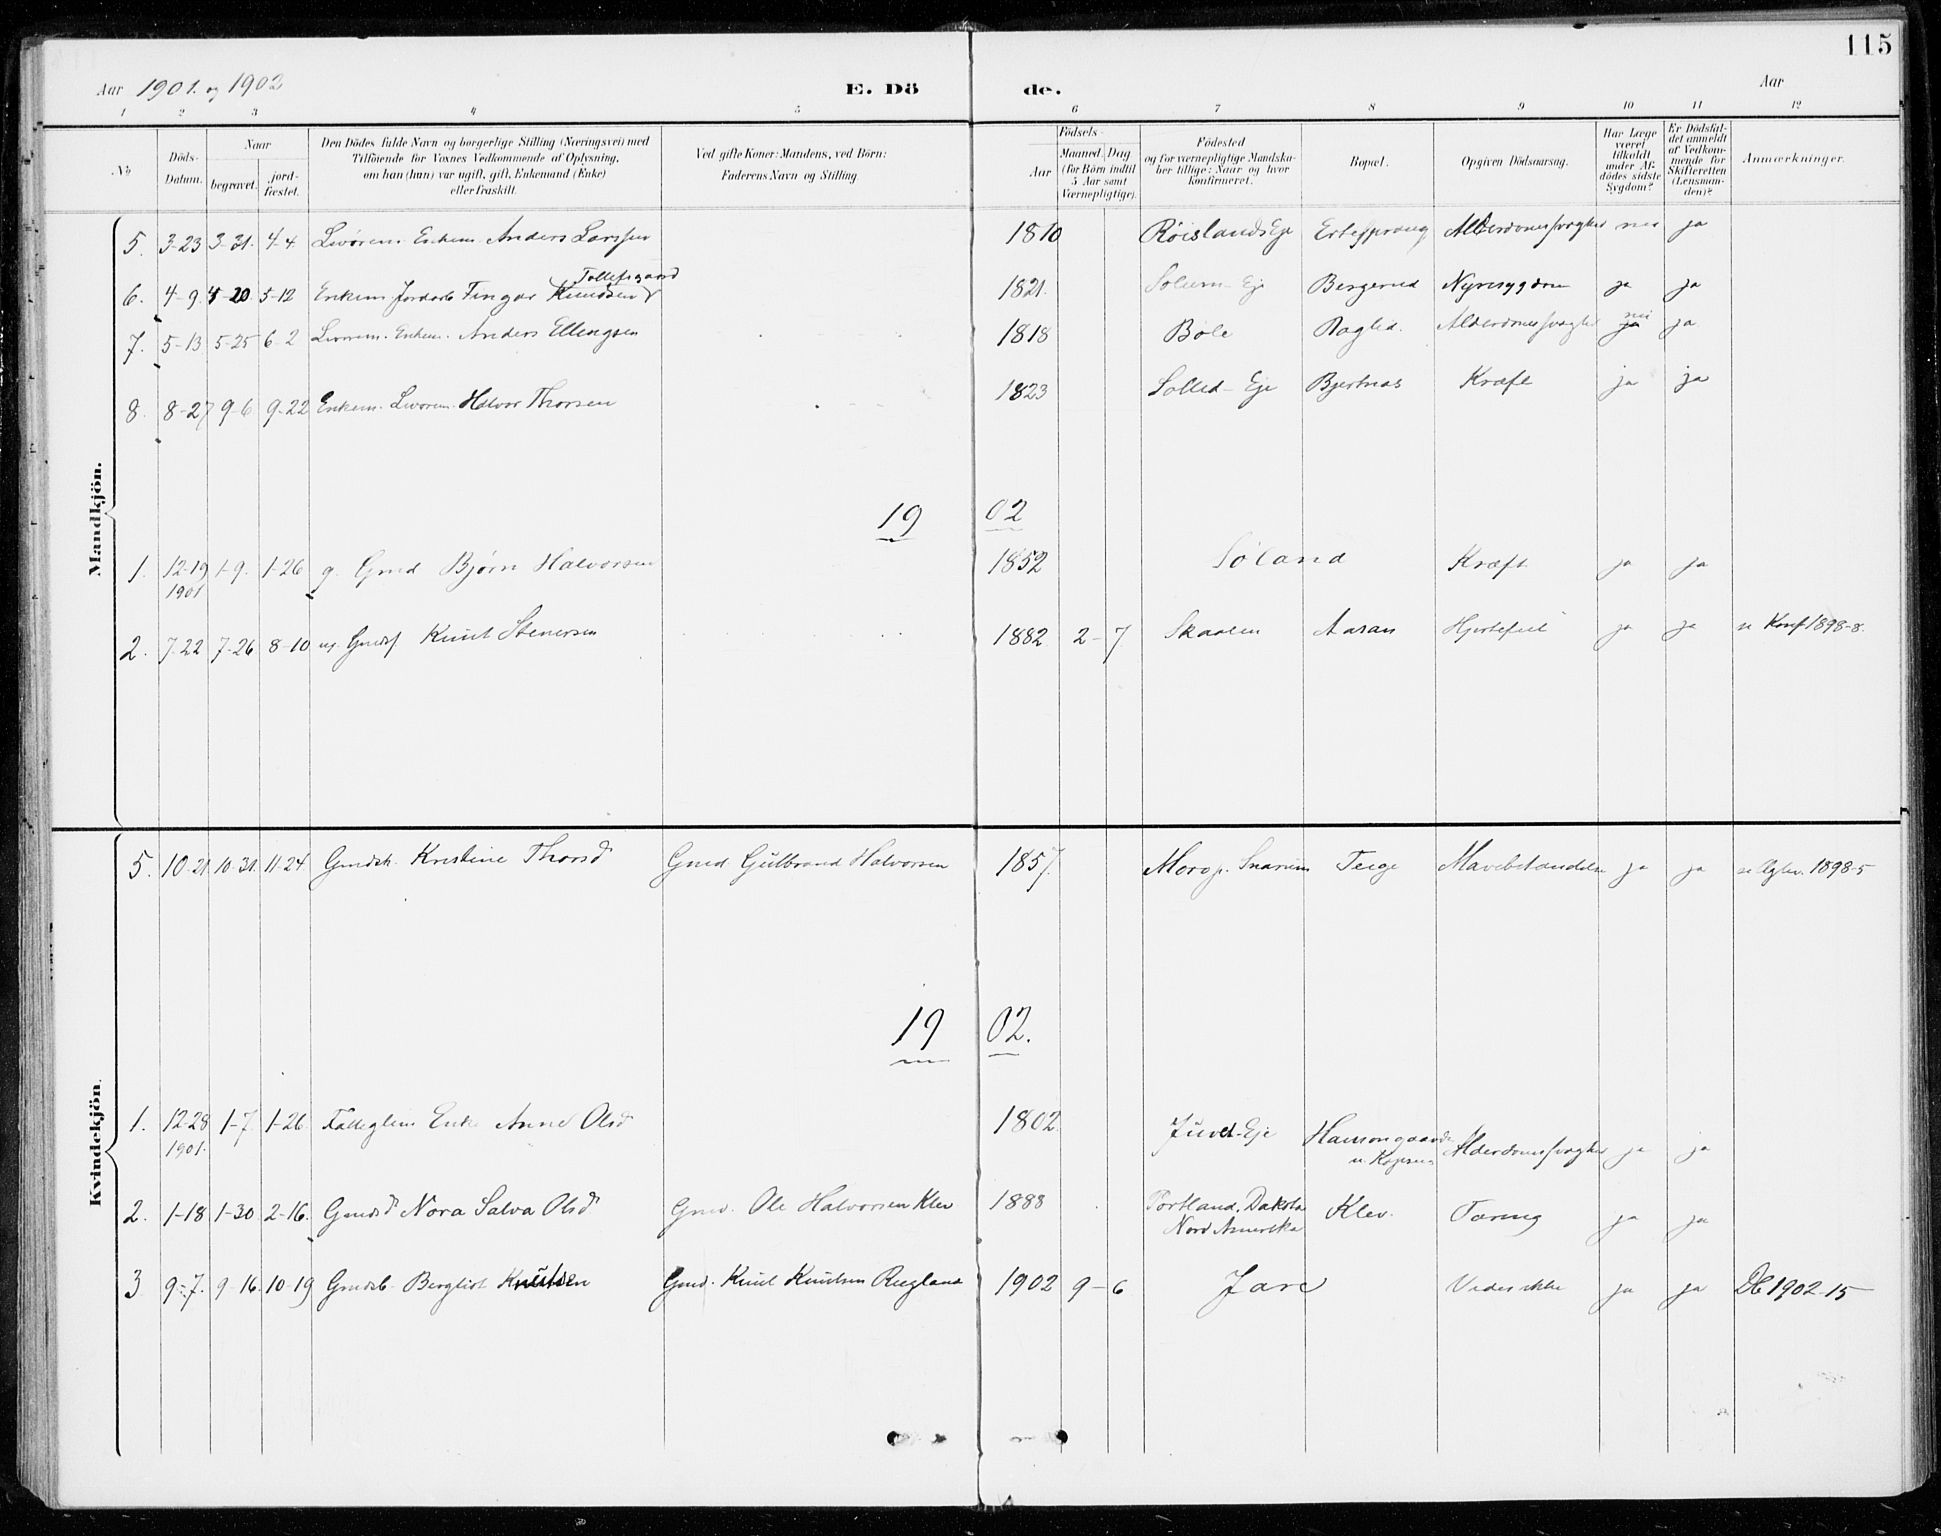 115
Aar 1901. og 1902 E. Dö de. Aar
1 2 3 4 5 6 7 8 9 10 11 12
No
Döds-Datum.
Naar begravet. jord-fæstet.
Den Dödes fulde Navn og borgerlige Stilling (Næringsvei) med
Tilföiende for Voxnes Vedkommende af Oplysning,
om han (hun) var ugift, gift, Enkemand (Enke)
eller fraskilt.
Ved gifte Koner: Mandens, ved Börn:
Faderens Navn og Stilling.
Födsels-
Aar Maaned. Dag (for Börn indtil 5 Aar samt Værnepligtige).
Födested
og for værnepligtige Mandska-
ber tillige: Naar og hvor
konfirmeret.
Bopæl.
Opgiven Dödsaarsag.
Har Læge været tilkaldt under Af-dödes sidste Sygdom?
Er Dödsfal-det anmeldt af Vedkom-mende for Skifteretten (Lensman-den)?
Anmærkninger.
Mandkjön.
5. 3-23 3-31. 4-4 Enkem. Anders Larssen 1810 Røislands Eje Ertesprang Alderdomssvaghed nei ja
Tollefsgaard
6. 4-9. 4-20 5-12 Enkem Jordarb Tingar Knudsen 1821. Solum-Eje Bergerud Nyresygdom ja ja
nei
7. 5-13 5-25 6-2 Enkem. Anders Ellingsen 1818 Bøle Alderdomssvaghed ja ja
8. 8-27 9-6 9-22 Enkem. Halvor Thorsen 1823 Eje Bjertnæs Kræft ja ja
19 02
1. 12-19 1-9. 1-26 g. Gmd Bjørn Halvorsen 1852 Søland Kræft ja ja
1901
2. 7-22 7-26 8-10 ug. Gmdsf Knut Stenersen 1882 2-7 Skaalen Aasan Hjertefeil ja ja se Konf. 1898-8.
Kvindekjön.
5. 10-21. 10-31. 11-24 Gmdsk. Kristine Thorsd Gmd. Gulbrand Halvorsen 1857. Moro p. Snarum Teige Mavebetændelse ja ja se Egtev. 1898-5
19 02.
1. 12-28 1-7 1-26 Enke Anne Olsd 1802. Juvet-Eje Alderdomssvaghed ja ja
1901.
2. 1-18 1-30 2-16. Gmdsd Nora Salva Olsd Gmd. Ole Halvorsen Klev 1888 Portland, Dakota Klev. Tæring ja ja
Nord Amerika
3 9-7. 9-16. 10-19 Gmdsb. Bergliot Knutsen Gmd. Knut Knutsen Rugland 1902 9-6 Jare Vides ikke ja ja Db 1902-15